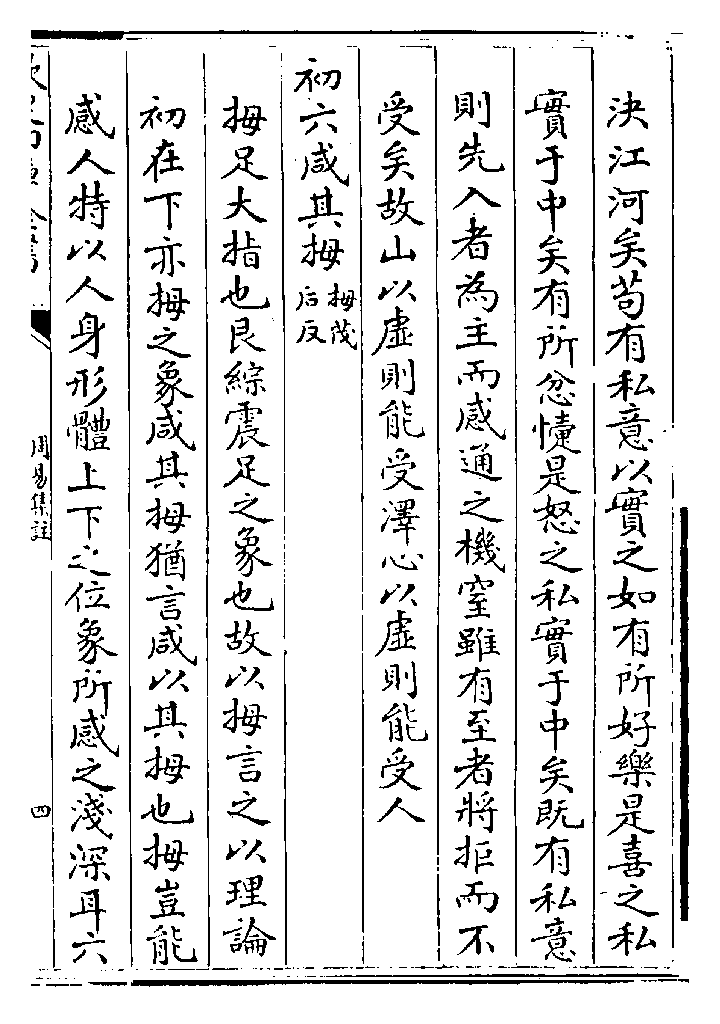 決江河矣苟有私意以實之如有所好樂是喜之私
實于中矣有所忿懥是怒之私實于中矣既有私意
則先入者為主而感通之機窒雖有至者將拒而不
受矣故山以虛則能受澤心以虛則能受人
初六咸其拇拇茂后反
拇足大指也艮綜震足之象也故以拇言之以理論
初在下亦拇之象咸其拇猶言咸以其拇也拇豈能
感人特以人身形體上下之位象所感之淺深耳六
周易集註
四